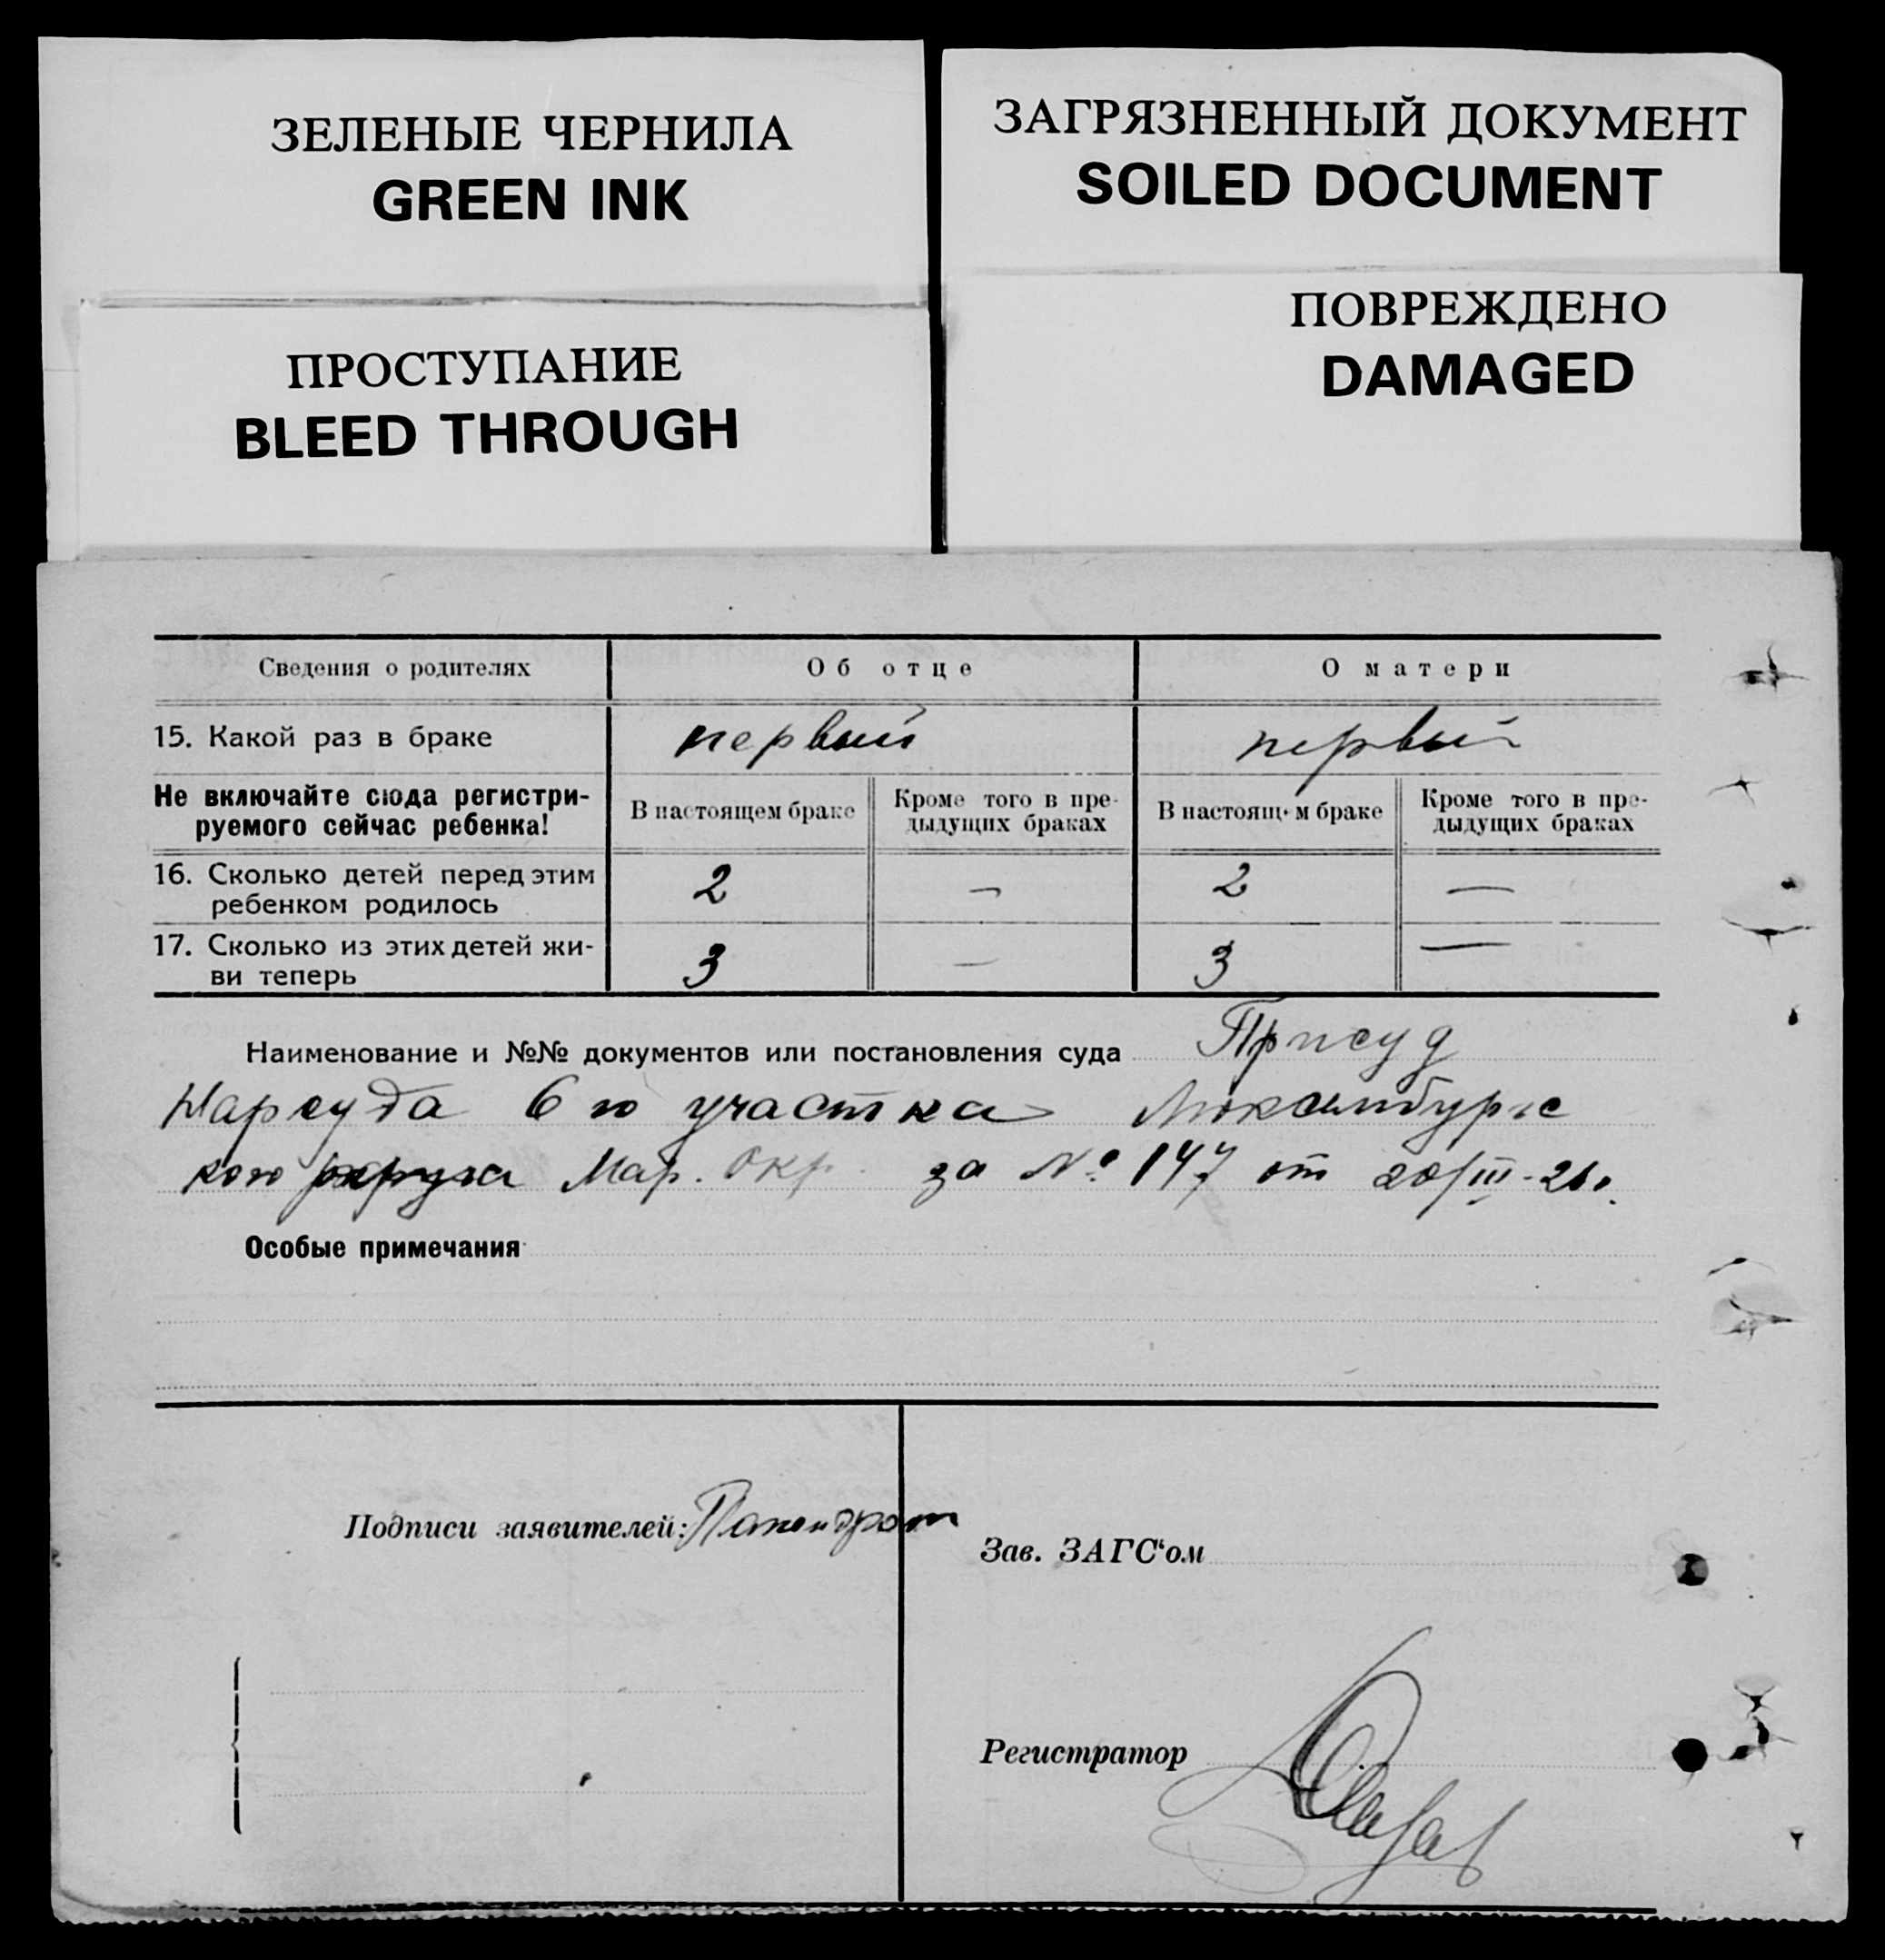 ЗЕЛЕНЫЕ ЧЕРНИЛА
GREEN INK
ЗАГРЯЗНЕННЫЙ ДОКУМЕНТ
SOILED DOCUMENT
ПРОСТУПАНИЕ
BLEED THROUGH
ПОВРЕЖДЕНО
DAMAGED
Сведения о родителях Об отце О матери
15. Какой раз в браке первый первый
Не включайте сюда регистри-
руемого сейчас ребенка!
В настоящем браке
Кроме того в пре-
дыдущих браках
В настоящем браке
Кроме того в пре-
дыдущих браках
16. Сколько детей перед этим
ребенком родилось 2 — 2 —
17. Сколько из этих детей жи-
ви теперь 3 — 3 —
Наименование и №№ документов или постановления суда Присуд
Нарсуда 6 го участка Люксембургс
кого Мар. Окр. за № 147 от 20/III-26.
Особые примечания
Подписи заявителей:
Зав. ЗАГС‘ом
Регистратор